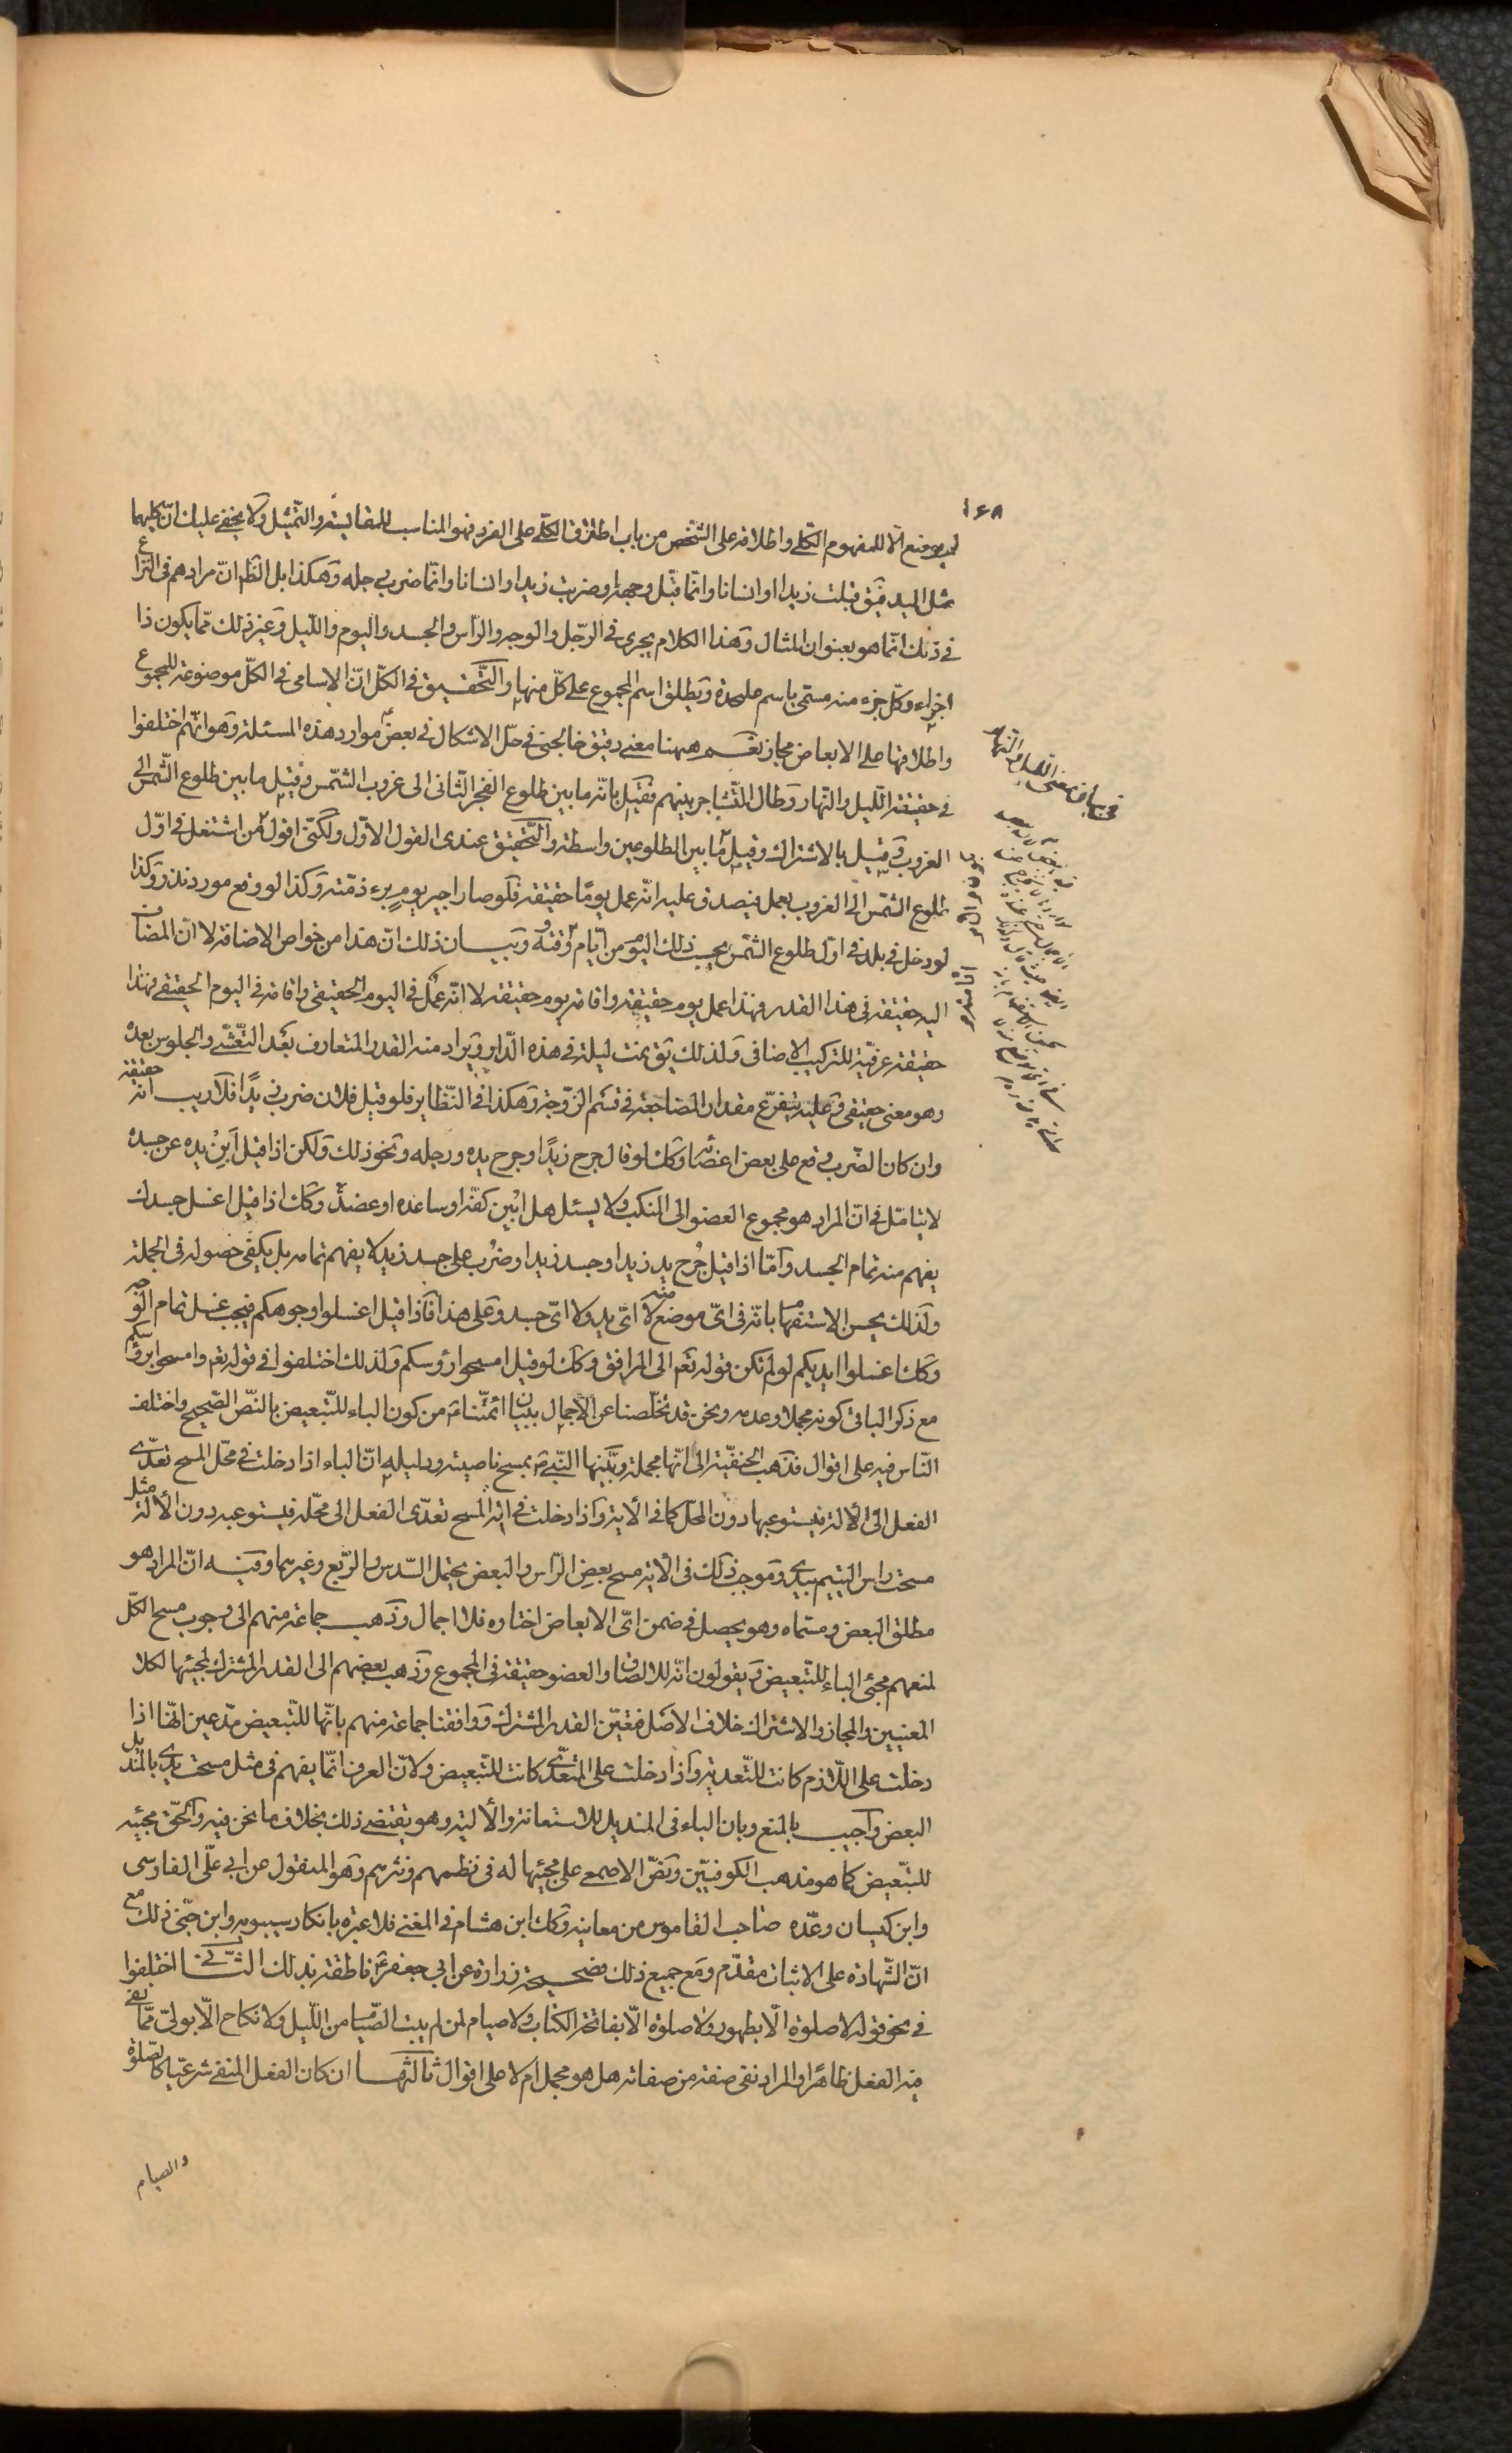 ١٦٨
لم يوضع الا للمفهوم الكلّي واطلاقه على الشخص من باب اطلاق الكلّي على الفرد فهو المناسب للمقايسة والتمثيل ولا يخفى عليك ان كليهما
مثل اليد فيق قبلت زيدا او انسانا وانّما قبّل وجهه او ضربت زيدا او انسانا وانّما ضرب رجله وهكذا بل الظّ انّ مرادهم في النزاع
في ذلك انّما هو بعنوان المثال وهذا الكلام يجرى في الرّجل والوجه والرّاس والجسد واليوم واللّيل وغير ذلك ممّا يكون ذا
اجزاء وكلّ جزء منه مسمّى باسم عليحدة ويطلق اسم المجموع على كلّ منها والتّحقيق في الكلّ انّ الاسامى في الكلّ موضوعة للمجموع
واطلاقها على الابعاض مجاز نعم ههنا معنى دقيق خالجنى في حلّ الاشكال في بعض موارد هذه المسئلة وهو انّهم اختلفوا
في حقيقة اللّيل والنّهار وطال التّشاجر بينهم فقيل بانّه ما بين طلوع الفجر الثّانى الى غروب الشّمس وقيل ما بين طلوع الشّمس الى
الغروب وقيل بالاشتراك وقيل ما بين الطلوعين واسطة والتّحقيق عندى القول الاوّل ولكنّى اقول من اشتغل في اوّل
طلوع الشّمس الى الغروب بعمل فيصدق عليه انّه عمل يومًا حقيقة فلو صار اجير يومٍ برء ذمّته وكذا لو وقع مورد نذر وكذا
لو دخل في بلد في اوّل طلوع الشّمس يحسب ذلك اليوم من ايّام وقته وبيان ذلك انّ هذا من خواص الاضافة لا انّ المضاف
اليه حقيقة في هذا القدر فهذا عمل يوم حقيقة واقامة يوم حقيقة لا انّه عمل في اليوم الحقيقى واقامة في اليوم الحقيقى فهذا
حقيقة عرفيّة للتركيب الاضافى ولذلك يق نمت ليلة في هذه الدّار ويراد منه القدر المتعارف بعد التّعشّى والجلوس بعده
وهو معنى حقيقى وعليه يتفرّع مقدار المضاجعة في قسم الزّوجة وهكذا في النّظاير فلو قيل فلان ضرب زيدًا فلا ريب انّه حقيقة
وان كان الضّرب وقع على بعض اعضائه وكك لو قال جرح زيدًا وجرح يده ورجله ونحو ذلك ولكن اذا قيل أبِنْ يده عن جسده
لا يتامّل في انّ المراد هو مجموع العضو الى المنكب ولا يسئل هل ابين كفّه او ساعده او عضده وكك اذا قيل اغسل جسدك
يفهم منه تمام الجسد وامّا اذا قيل جُرح يد زيد او جسد زيد او ضُرب على جسد زيد لا يفهم تمامه بل يكفى حصوله في الجملة
ولذلك يحسن الاستفهام بانّه في اىّ موضع منه لا اىّ يد ولا اىّ جسد وعلى هذا فاذا قيل اغسلوا وجوهكم فيجب غسل تمام الوجه
وكك اغسلوا ايديكم لو لم تكن قوله تعم الى المرافق وكك لو قيل امسحوا رؤسكم ولذلك اختلفوا في قوله تعم وامسحوا برؤسكم
مع ذكر الباء في كونه مجملا وعدمه ونحن قد تخلّصنا عن الاجمال ببيان ائمّتناء من كون الباء للتّبعيض بالنصّ الصّحيح واختلف
النّاس فيه على اقوال فذهب الحنفيّة الى انّها مجملة وبيّنها النّبي ص بمسح ناصيته ودليله انّ الباء اذا دخلت في محلّ المسح تعدّى
الفعل الى الألة فيستوعبها دون المحلّ كما في الأية واذا دخلت في الة المسح تعدّى الفعل الى محلّه فيستوعبه دون الألة مثل
مسحت راس اليتيم بيدى وموجب ذلك في الأية مسح بعض الرّاس والبعض يحتمل السّدس والرّبع وغيرهما وفيه انّ المراد هو
مطلق البعض ومسمّاه وهو يحصل في ضمن اىّ الابعاض اختاره فلا اجمال وذهب جماعة منهم الى وجوب مسح الكلّ
لمنعهم مجئ الباء للتّبعيض ويقولون انّه للالصاق والعضو حقيقة في المجموع وذهب بعضهم الى القدر المشترك لمجيئها لكلا
المعنيين والمجاز والاشتراك خلاف الاصل فتعيّن القدر المشترك ووافقنا جماعة منهم بانّها للتّبعيض مدّعين انّها اذا
دخلت على اللّازم كانت للتّعدية واذا دخلت على المتعدّى كانت للتّبعيض ولانّ العرف انّما يفهم في مثل مسحت يدى بالمنديل
البعض واجيب بالمنع وبان الباء في المنديل للاستعانة والألية وهو يقتضى ذلك بخلاف ما نحن فيه والحقّ مجيئه
للتّبعيض كما هو مذهب الكوفيّين ونصّ الاصمعى على مجيئها له في نظمهم ونثرهم وهو المنقول عن ابى علّى الفارسى
وابن كيسان وعدّه صاحب القاموس من معانيه وكك ابن هشام في المغنى فلا عبرة بانكار سيبويه وابن جنّى ذلك مع
انّ الشّهادة على الاثبات مقدّم ومع جميع ذلك فصحيحة زرارة عن ابى جعفر ع ناطقة بذلك اختلفوا
في نحو قوله لا صلوة الّا بطهور ولا صلوة الّا بفاتحة الكتاب ولا صيام لمن لم يبت الصّيام من اللّيل ولا نكاح الّا بولىّ ممّا نفى
فيه الفعل ظاهرًا والمراد نفى صفة من صفاته هل هو مجمل ام لا على اقوال ثالثها ان كان الفعل المنفى شرعيّا كالصّلوة
والصيام